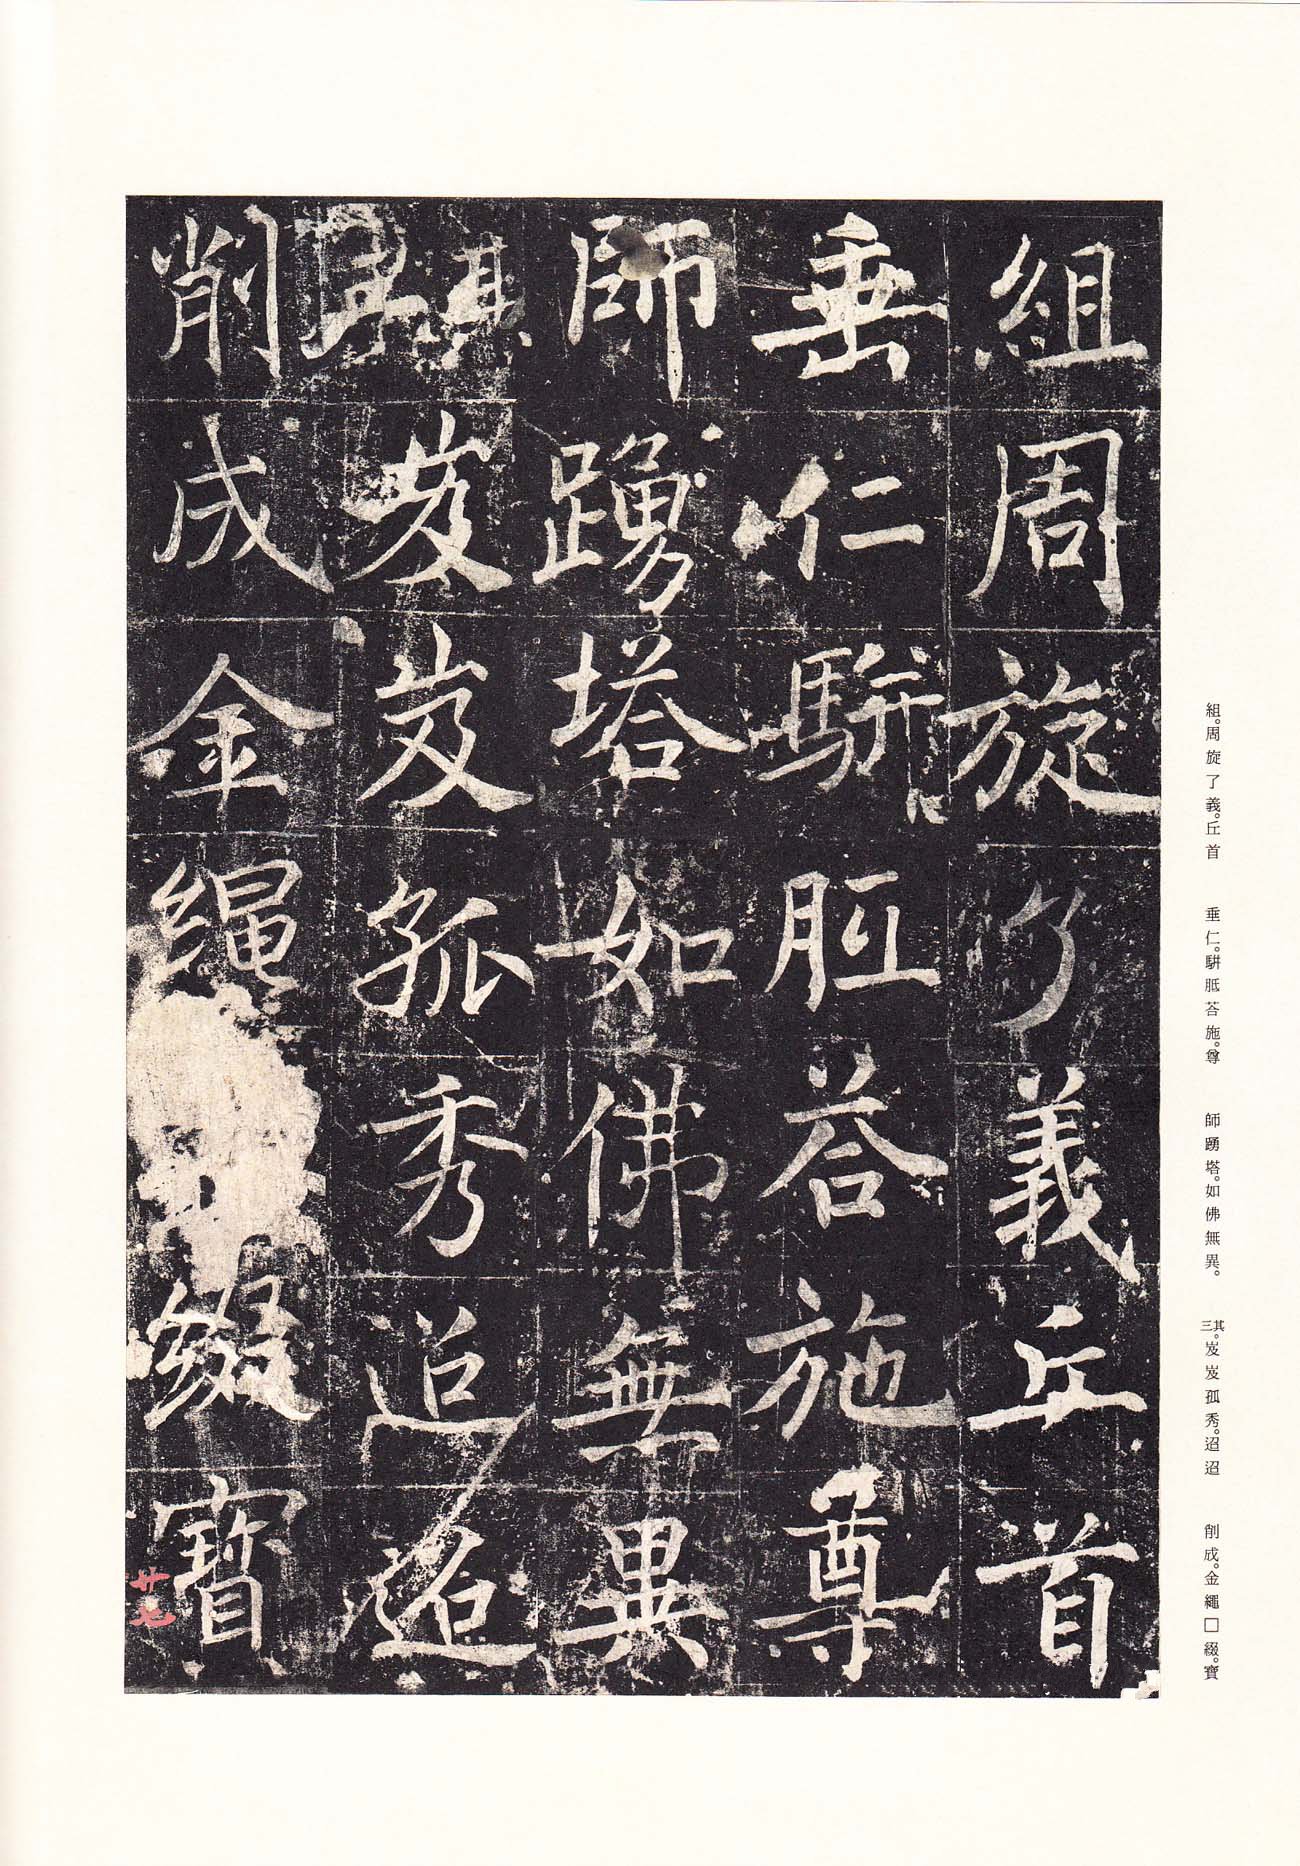 組周旋了義丘首
垂仁駢胝荅施尊
師踴塔如佛無異
其三岌岌孤秀迢迢
削成金繩綴寶
廿七
組。周旋了義。丘首
垂仁。駢胝荅施。尊
師踴塔。如佛無異。
其三。岌岌孤秀。迢迢
削成。金繩□綴。寶